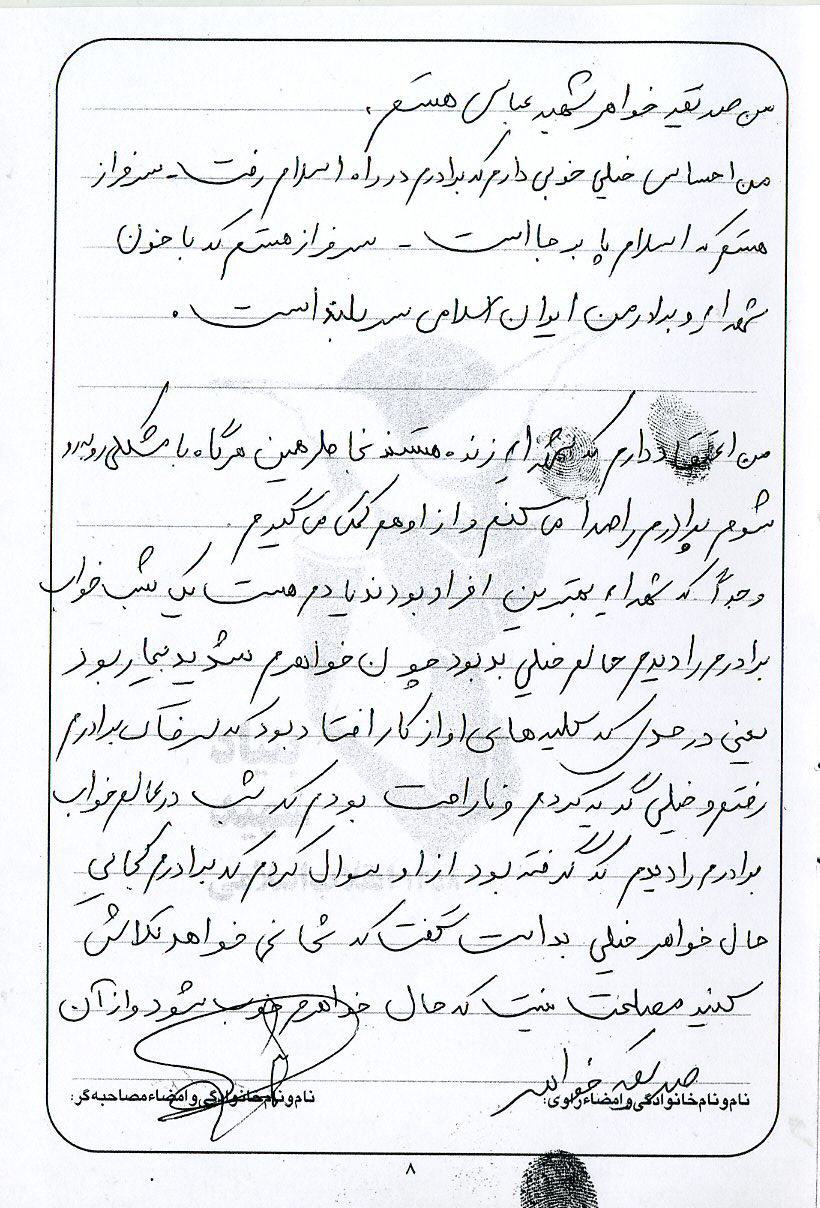 من صدیقه خواهر شهید عباس هستم .
من احساس خیلی خوبی دارم که برادرم در راه اسلام رفت - سرفراز
هستم که اسلام پا برجا است - سرفراز هستم که با خون
شهداء و برادر من ایران اسلامی سربلند است .
من اعتقاد دارم که شهداء زنده هستند بخاطر همین هرگاه با مشکلی روبه رو
شوم برادرم را صدا می کنم و از او هم کمک می گیرم
و جداً که شهداء بهترین افراد بودند یادم هست یک شب خواب
برادرم را دیدم حالم خیلی بد بود چون خواهرم شدید بیمار بود
یعنی در حدی که کلیه های او از کار افتاد بود که سر خاک برادرم
رفتم و خیلی گریه کردم و ناراحت بودم که شب در عالم خواب
برادرم را دیدم که گرفته بود از او سوال کردم که برادرم کجایی
حال خواهر خیلی بد است گفت که شما نمی خواهد تلاش
کنید مصلحت نیست که حال خواهرم خوب شود و از آن
صدیقه خواهر
نام و نام خانوادگی و امضاء راوی: نام و نام خانوادگی و امضاء مصاحبه گر:
۸